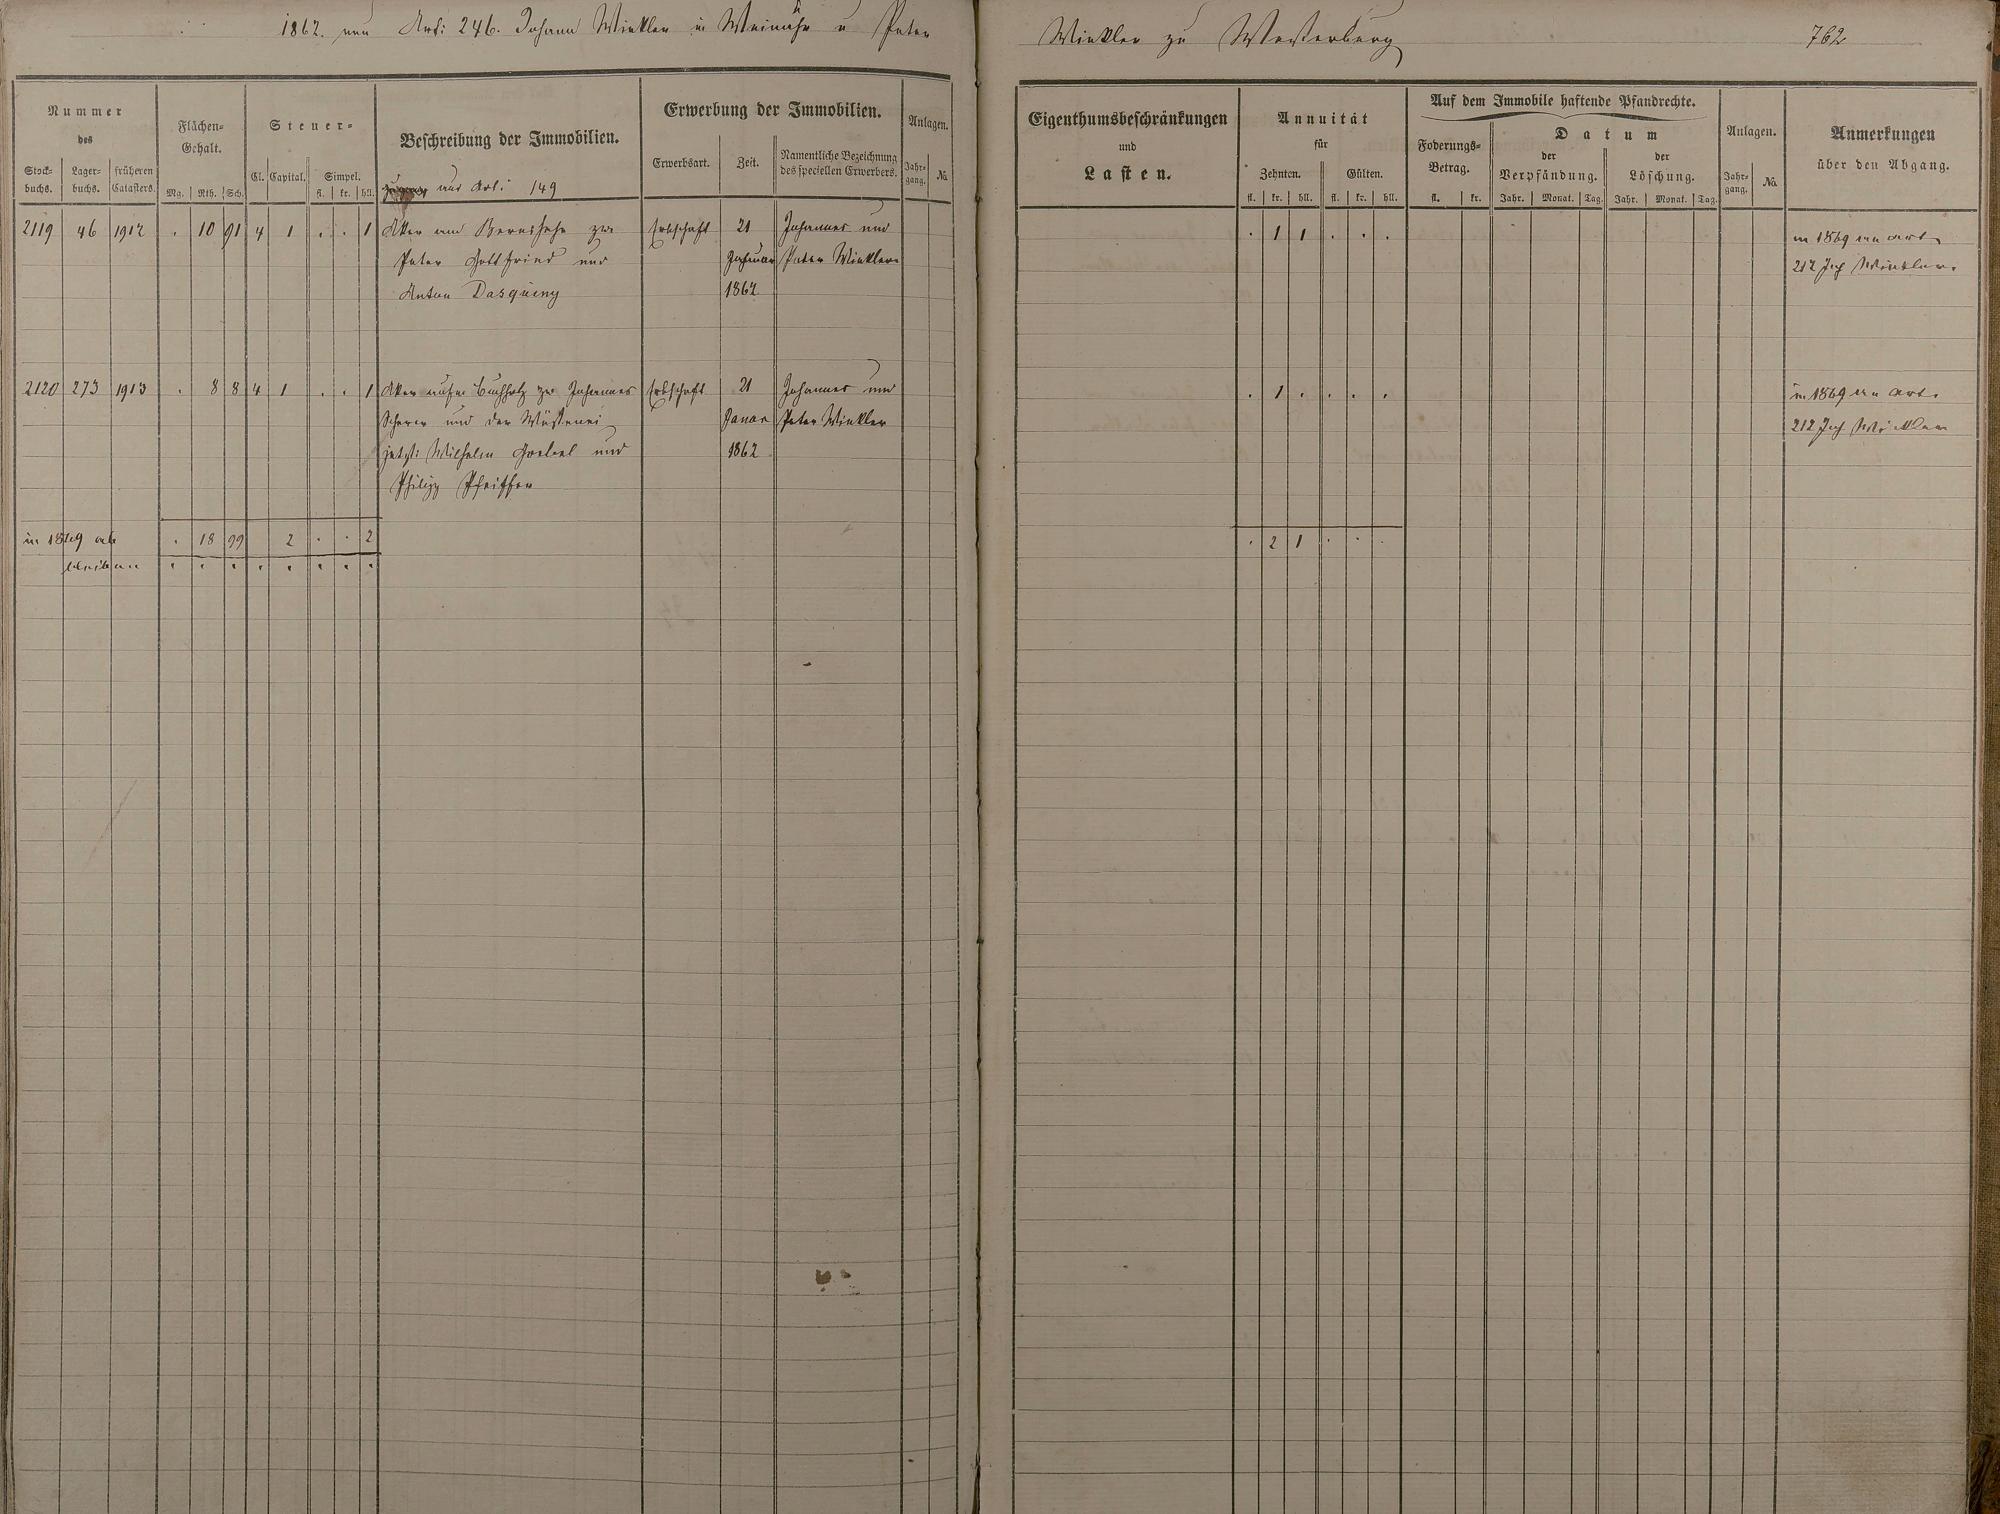 1862. neu Art: 246. Johann Winkler in Weinähr u Peter
Winkler zu Westerburg
762
Nummer
des
Stock-
buchs.
Lager-
buchs.
früheren
Catasters.
Flächen-
Gehalt.
Mg. Rth. Sch.
Steuer-
Cl. Capital. Simpel.
fl. kr. hll.
Beschreibung der Immobilien.
aus Art: 149
Erwerbung der Immobilien.
Erwerbsart.
Zeit.
Namentliche Bezeichnung
des speciellen Erwerbers.
Anlagen.
Jahr-
gang.
No.
Eigenthumsbeschränkungen
und
Lasten.
Annuität
für
Zehnten. Gülten.
fl. kr. hll. fl. kr. hll.
Auf dem Immobile haftende Pfandrechte.
Foderungs-
Betrag.
fl. kr.
Datum
der
Verpfändung.
Jahr. Monat. Tag.
der
Löschung.
Jahr. Monat. Tag.
Anlagen.
Jahr-
gang.
No.
Anmerkungen
über den Abgang.
2119 46 1912 . 10 91 4 1 . . 1 Acker am zw. Erbschaft 21 Johannes und . 1 1 . . . in 1869 an Art.
Peter Gottfried und Januar Peter Winkler 212 Joh Winkler.
Anton Dasqueny 1862
2120 273 1913 . 8 8 4 1 . . 1 Acker aufm Buchholz zw Johannes Erbschaft 21 Johannes und . 1 . . . . in 1869 an Art.
Scherer und der Wüstenei Januar Peter Winkler 212 Joh Winkler
jetzt: Wilhelm Goebel und 1862
Philipp Pfeiffer
in 1869 ab . 18 99 2 . . 2 . 2 1 . . .
bleiben " " " " " " " "